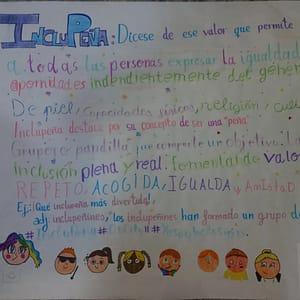 INCLUPEÑA: Dícese de ese valor que permite
a todas las personas expresar la igualdad
independientemente del géner
De piel, Capacidades físicas, religión,
Inclupeña destaca por su concepto de ser una "peña"
Grupo o pandilla que comparte un objetivo. La
inclusión plena y real. fomentar de valo
REPETO, ACOGIDA, IGUALDA y AmistaD
Ej: ¡Qué inclupeña más divertida!,
adj. inclupeñines, "los inclupeñines han formado un grupo de